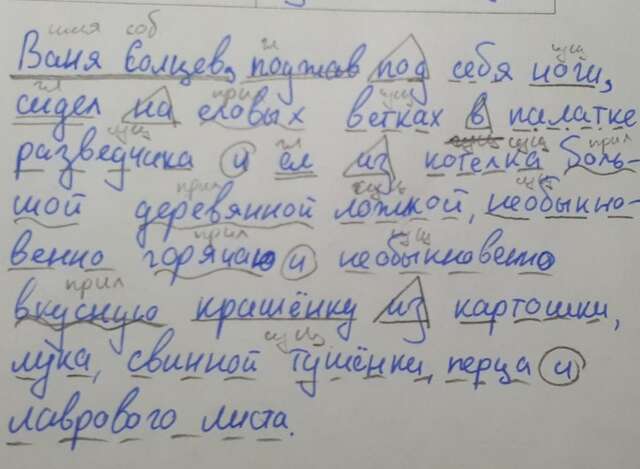 имя соб гл сущ
Ваня Солцев, поджав под себя ноги,
гл прил сущ
сидел на еловых ветках в палатке
сущ гл сущ сущ прил
разведчика и ел из котелка боль-
прил сущ сущ
шой деревянной ложкой, необыкно-
прил сущ
венно горячую и необыкновенно
прил
вкусную крашёнку из картошки,
сущ
лука, свинной тушёнки, перца и
лаврового листа.